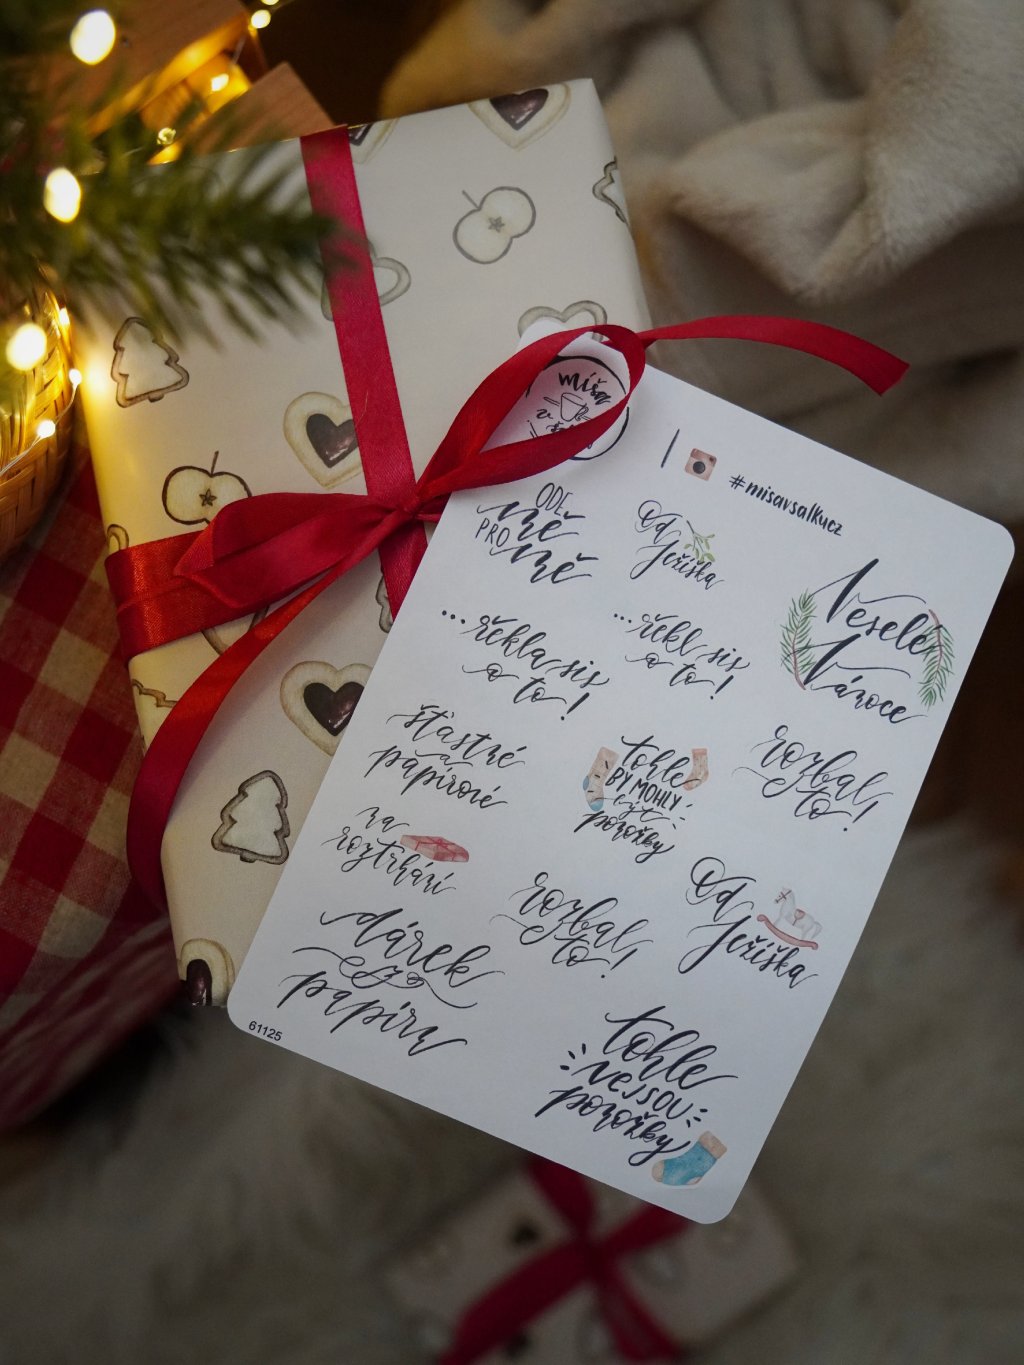 míša
v š
#misavsalkucz
ODE
mě
PRO
mě
Od
Ježíška
Veselé
Vánoce
...řekla sis
o to!
...řekl sis
o to!
šťastné
a
papírové
tohle
BY MOHLY
být
ponožky
rozbal
to!
na
roztrhání
rozbal
to!
Od
Ježíška
dárek
z
papíru
tohle
NEJSOU
ponožky
61125